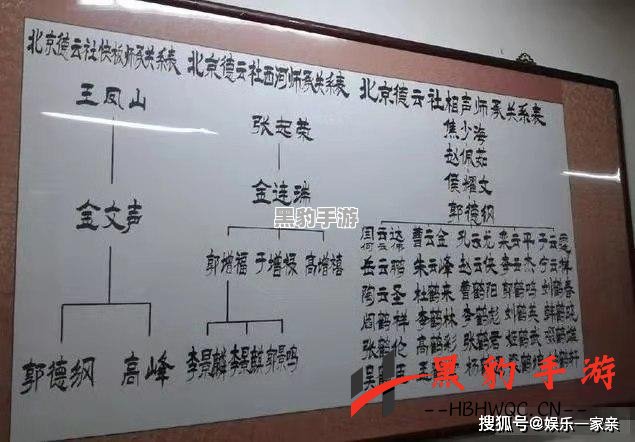 北京德云社快板师承关系表
王凤山
金文声
郭德纲 高峰
北京德云社西河师承关系表
张志荣
金连瑞
郭增福 于增禄 高增禧
李景麟 李景麟 郭景鸣
北京德云社相声师承关系表
焦少海
赵佩茹
侯耀文
郭德纲
曹云金 孔云龙
岳云鹏 朱云峰 赵云侠 李云杰 宁云祥
陶云圣 杜鹤来 曹鹤阳 郭鹤鸣 刘鹤春
阎鹤祥 李鹤林 李鹤彪 刘鹤英
张鹤伦 高鹤彩
吴
王
杨
黑豹手游
黑豹手游
--HBHWQC.CN--
搜狐号@娱乐一家亲